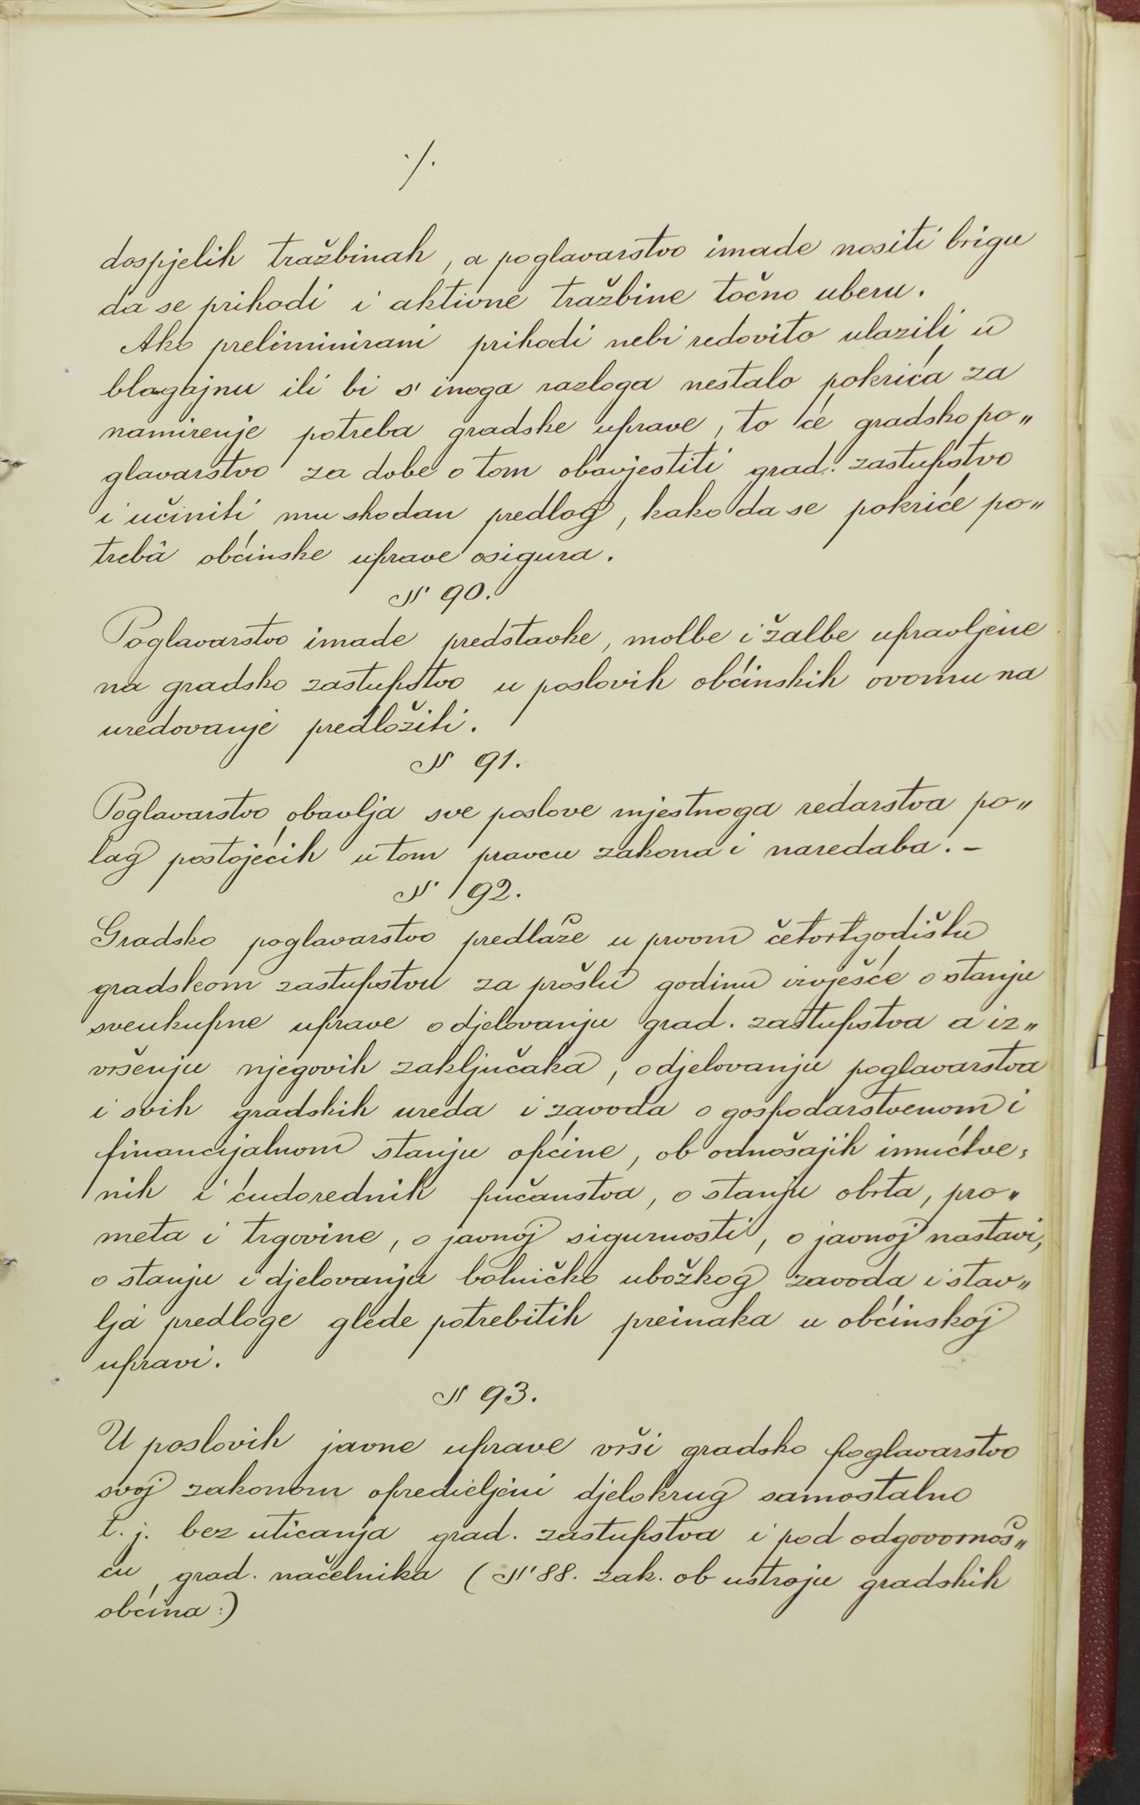 ./.
dospjelih tražbinah, a poglavarstvo imade nositi brigu
da se prihodi i aktivne tražbine točno uberu.
Ako preliminirani prihodi nebi redovito ulazili u
blagajnu ili bi s' inoga razloga nestalo pokrića za
namirenje potreba gradske uprave, to će gradsko po„
glavarstvo za dobe o tom obavjestiti grad. zastupstvo
i učiniti mu shodan predlog, kako da se pokriće po„
trebâ obćinske uprave osigura.
§ 90.
Poglavarstvo imade predstavke, molbe i žalbe upravljene
na gradsko zastupstvo u poslovih obćinskih ovomu na
uredovanje predložiti.
§ 91.
Poglavarstvo obavlja sve poslove mjestnoga redarstva po„
lag postojećih u tom pravcu zakona i naredaba. –
§ 92.
Gradsko poglavarstvo predlaže u prvom četvrtgodištu
gradskom zastupstvu za prošlu godinu izvješće o stanju
sveukupne uprave o djelovanju grad. zastupstva a iz„
vršenju njegovih zaključaka, o djelovanju poglavarstva
i svih gradskih ureda i zavoda o gospodarstvenom i
financijalnom stanju općine, ob odnošajih imućtve„
nih i ćudorednih pučanstva, o stanju obrta, pro„
meta i trgovine, o javnoj sigurnosti, o javnoj nastavi,
o stanju i djelovanju bolničko ubožkog zavoda i stav„
lja predloge glede potrebitih preinaka u obćinskoj
upravi.
§ 93.
U poslovih javne uprave vrši gradsko poglavarstvo
svoj zakonom opredieljeni djelokrug samostalno
t. j. bez uticanja grad. zastupstva i pod odgovornoš„
ću grad. načelnika (§ 88. zak. ob ustroju gradskih
obćina:)